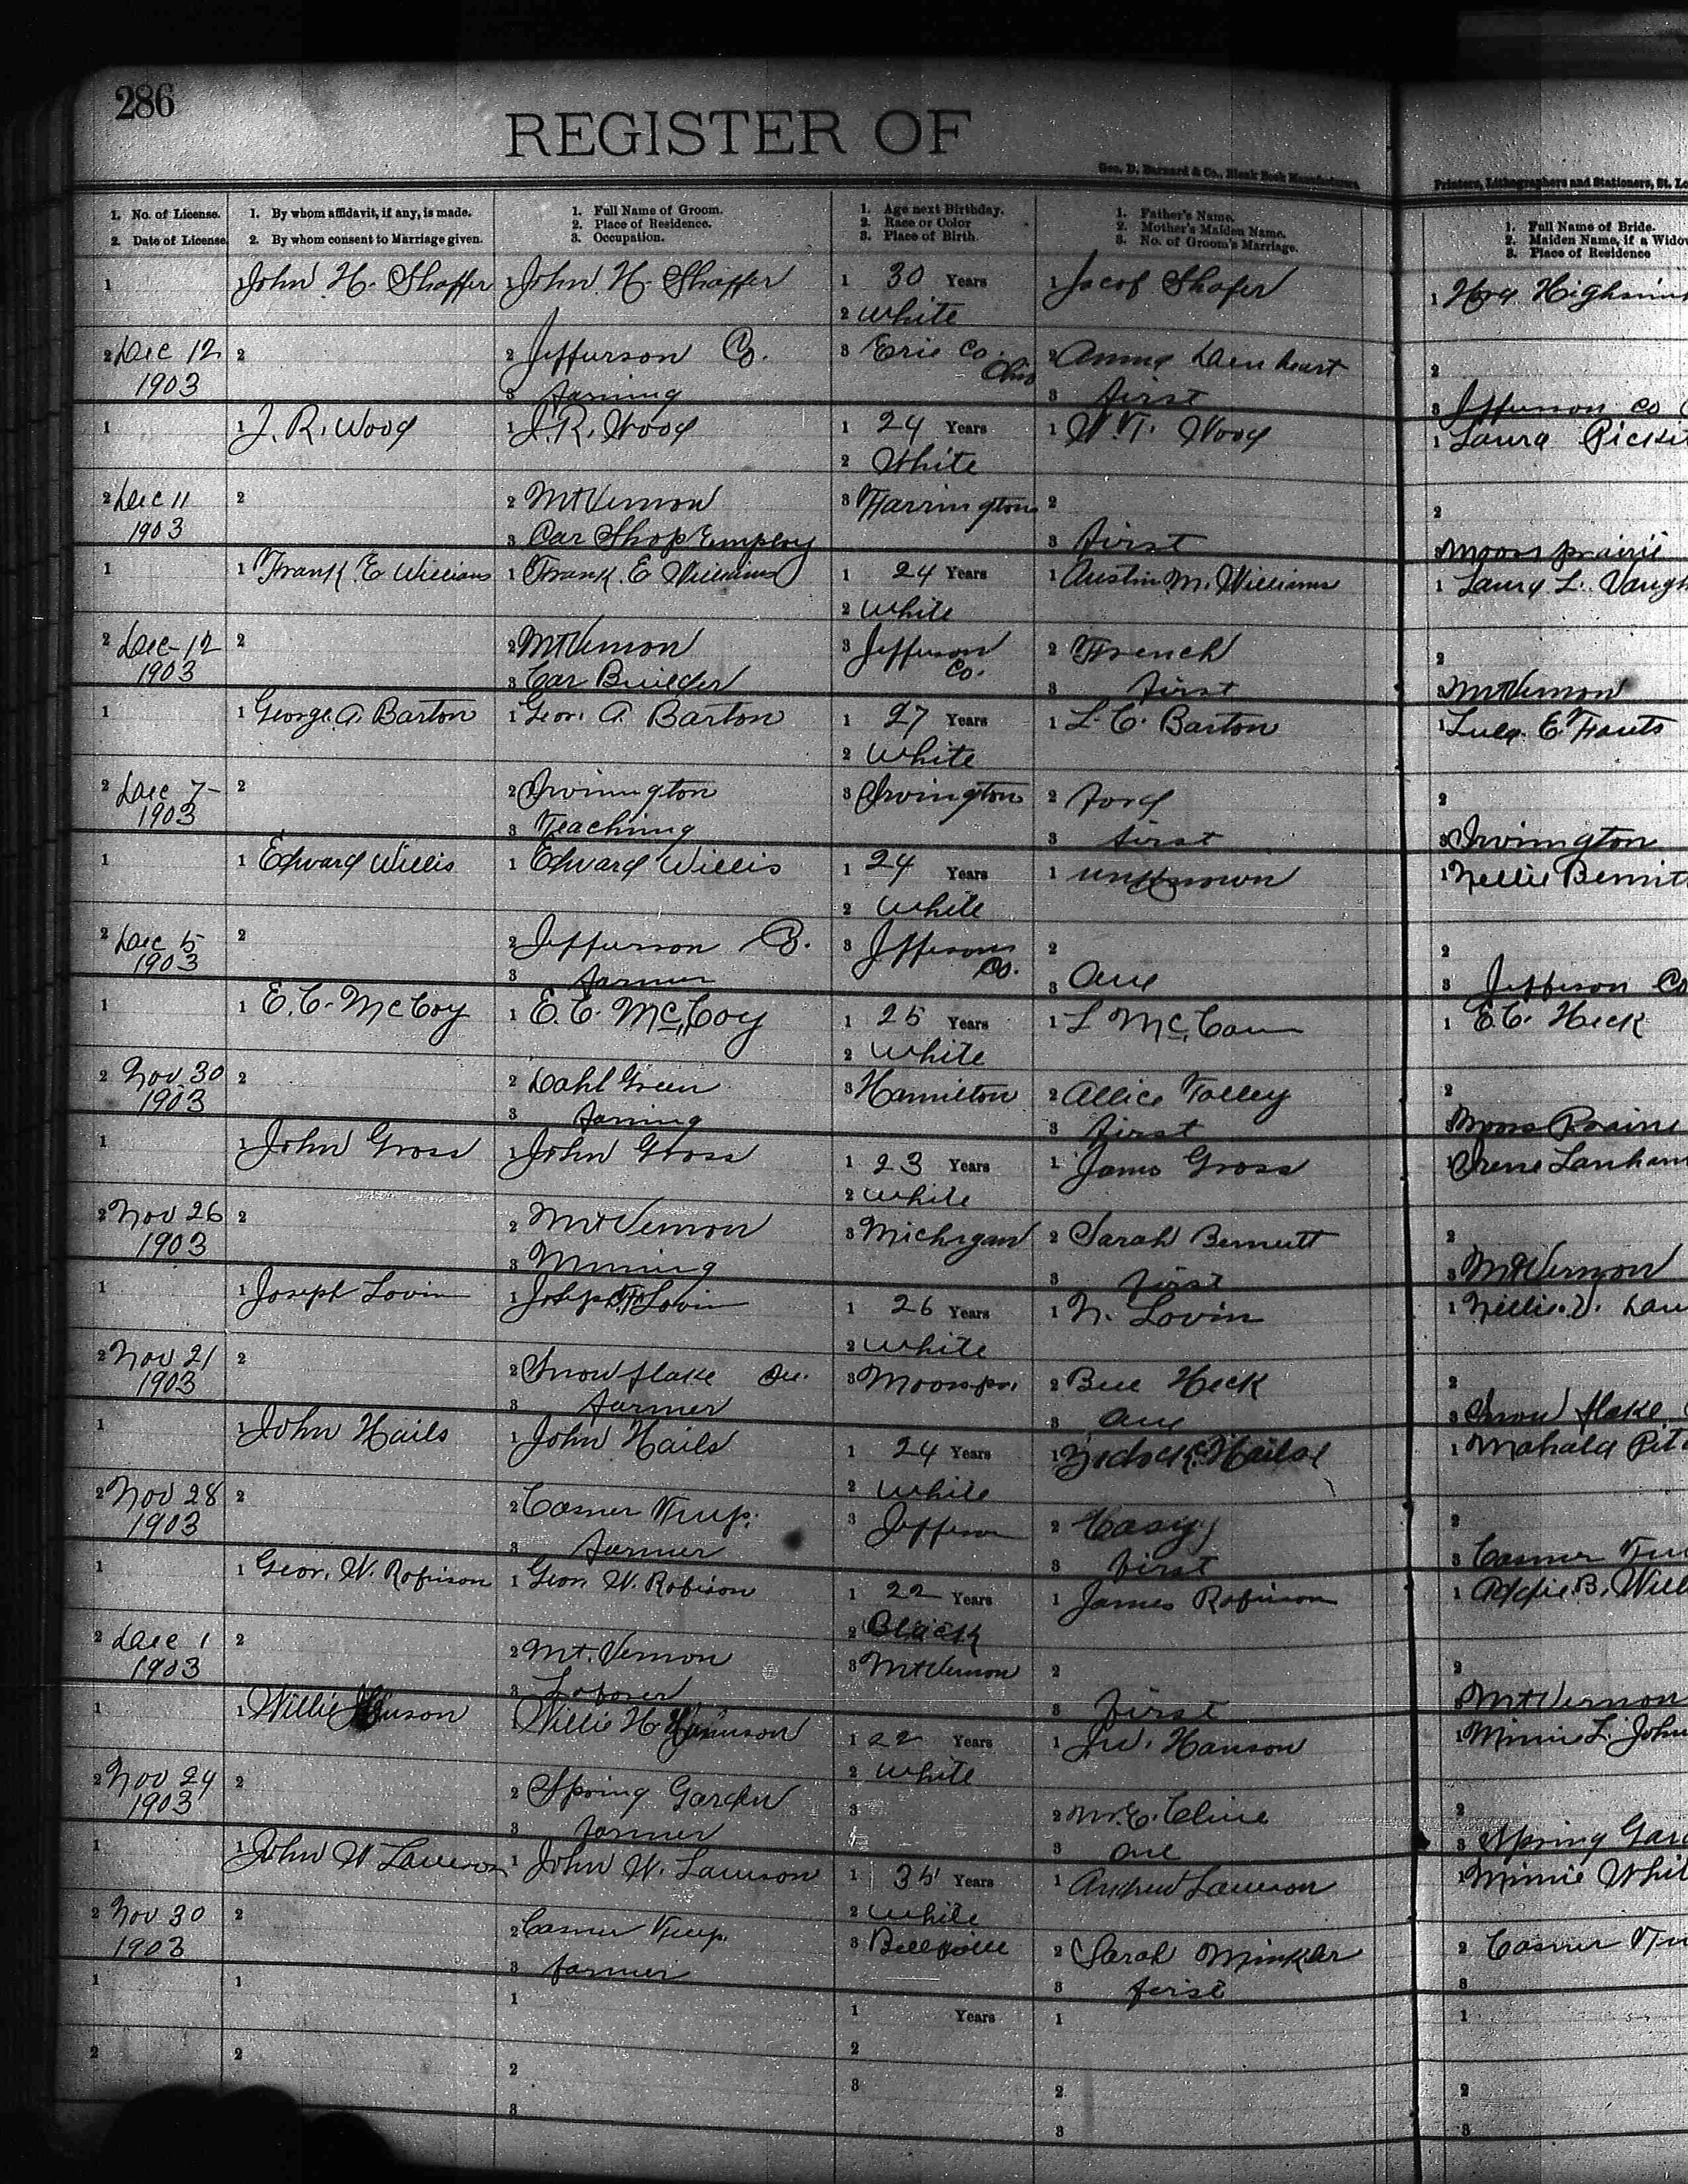 286
REGISTER OF
Geo. D. Barnard & Co., Blank Book Manufacturers,
Printers, Lithographers and Stationers, St. Lo
1. No. of License.
2. Date of License.
1. By whom affidavit, if any, is made.
2. By whom consent to Marriage given.
1. Full Name of Groom.
2. Place of Residence.
3. Occupation.
1. Age next Birthday.
2. Race or Color
3. Place of Birth.
1. Father's Name.
2. Mother's Maiden Name.
3. No. of Groom's Marriage.
1. Full Name of Bride.
2. Maiden Name, if a Widow
3. Place of Residence
1 1 John H. Shaffer 1 John H. Shaffer 1 30 Years 1 Jacob Shafer 1 Highsmi
2 White
2 Dec 12 2 2 Jefferson Co. 3 Erie Co. Ohio 2 Anna 2
1903 3 farming 3 first 3 Jefferson Co
1 1 J. R. Wood 1 J. R. Wood 1 24 Years 1 W. T. Wood 1 Laura Picket
2 White
2 Dec 11 2 2 Mt Vernon 3 Harrington 2 2
1903 3 Car Shop Employ 3 first 3 Moors prairie
1 1 Frank E Williams 1 Frank E Williams 1 24 Years 1 Austin M. Williams 1 Laura L. Vaugh
2 White
2 Dec-12 2 2 Mt Vernon 3 Jefferson Co. 2 French 2
1903 3 Car Builder 3 first 3 Mt Vernon
1 1 George A. Barton 1 Geo. A. Barton 1 27 Years 1 L. C. Barton 1 Lula E. Fouts
2 White
2 Dec 7- 2 2 Irvington 3 Irvington 2 Ford 2
1903 3 Teaching 3 first 3 Irvington
1 1 Edward Willis 1 Edward Willis 1 24 Years 1 unknown 1 Nellie Bennett
2 White
2 Dec 5 2 2 Jefferson Co. 3 Jefferson Co. 2 2
1903 3 farmer 3 one 3 Jefferson Co
1 1 E. C. McCoy 1 E. C. McCoy 1 25 Years 1 L 1 E. C. Heck
2 White
2 Nov 30 2 2 Dahlgreen 3 Hamilton 2 Allice Talley 2
1903 3 farming 3 first 3 Moors Prairie
1 1 John Gross 1 John Gross 1 23 Years 1 James Gross 1 Irene Lanham
2 White
2 Nov 26 2 2 Mt Vernon 3 Michigan 2 Sarah Bennett 2
1903 3 Mining 3 first 3 Mt Vernon
1 1 Joseph Lovin 1 Joseph Lovin 1 26 Years 1 N. Lovin 1 Nellie V.
2 White
2 Nov 21 2 2 Snowflake Ill. 3 Moors pr. 2 Heck 2
1903 3 farmer 3 one 3 Snow flake
1 1 John Hails 1 John Hails 1 24 Years 1 Hails 1 Mahala Pit
2 White
2 Nov 28 2 2 Casner Twp. 3 Jefferson 2 Casey 2
1903 3 farmer 3 first 3 Casner Tw
1 1 Geo. W. Robison 1 Geo. W. Robison 1 22 Years 1 James Robinson 1 Addie B. Will
2 Black
2 Dec 1 2 2 Mt. Vernon 3 Mt Vernon 2 2
1903 3 Laborer 3 first 3 Mt Vernon
1 1 Willie 1 Willie H. 1 22 Years 1 Hanson 1 Minnie L. John
2 White
2 Nov 24 2 2 Spring Garden 3 2 M. E. Cline 2
1903 3 farmer 3 one 3 Spring Gard
1 1 John W Lawson 1 John W. Lawson 1 35 Years 1 Andrew Lawson 1 Minnie Whit
2 White
2 Nov 30 2 2 Casner Twp. 3 Belleville 2 Sarah Minkler 2 Casner Tw
1903 3 farmer 3 first 3
1 1 1 1 Years 1 1
2 2 2 2 2 2
3 3 3 3